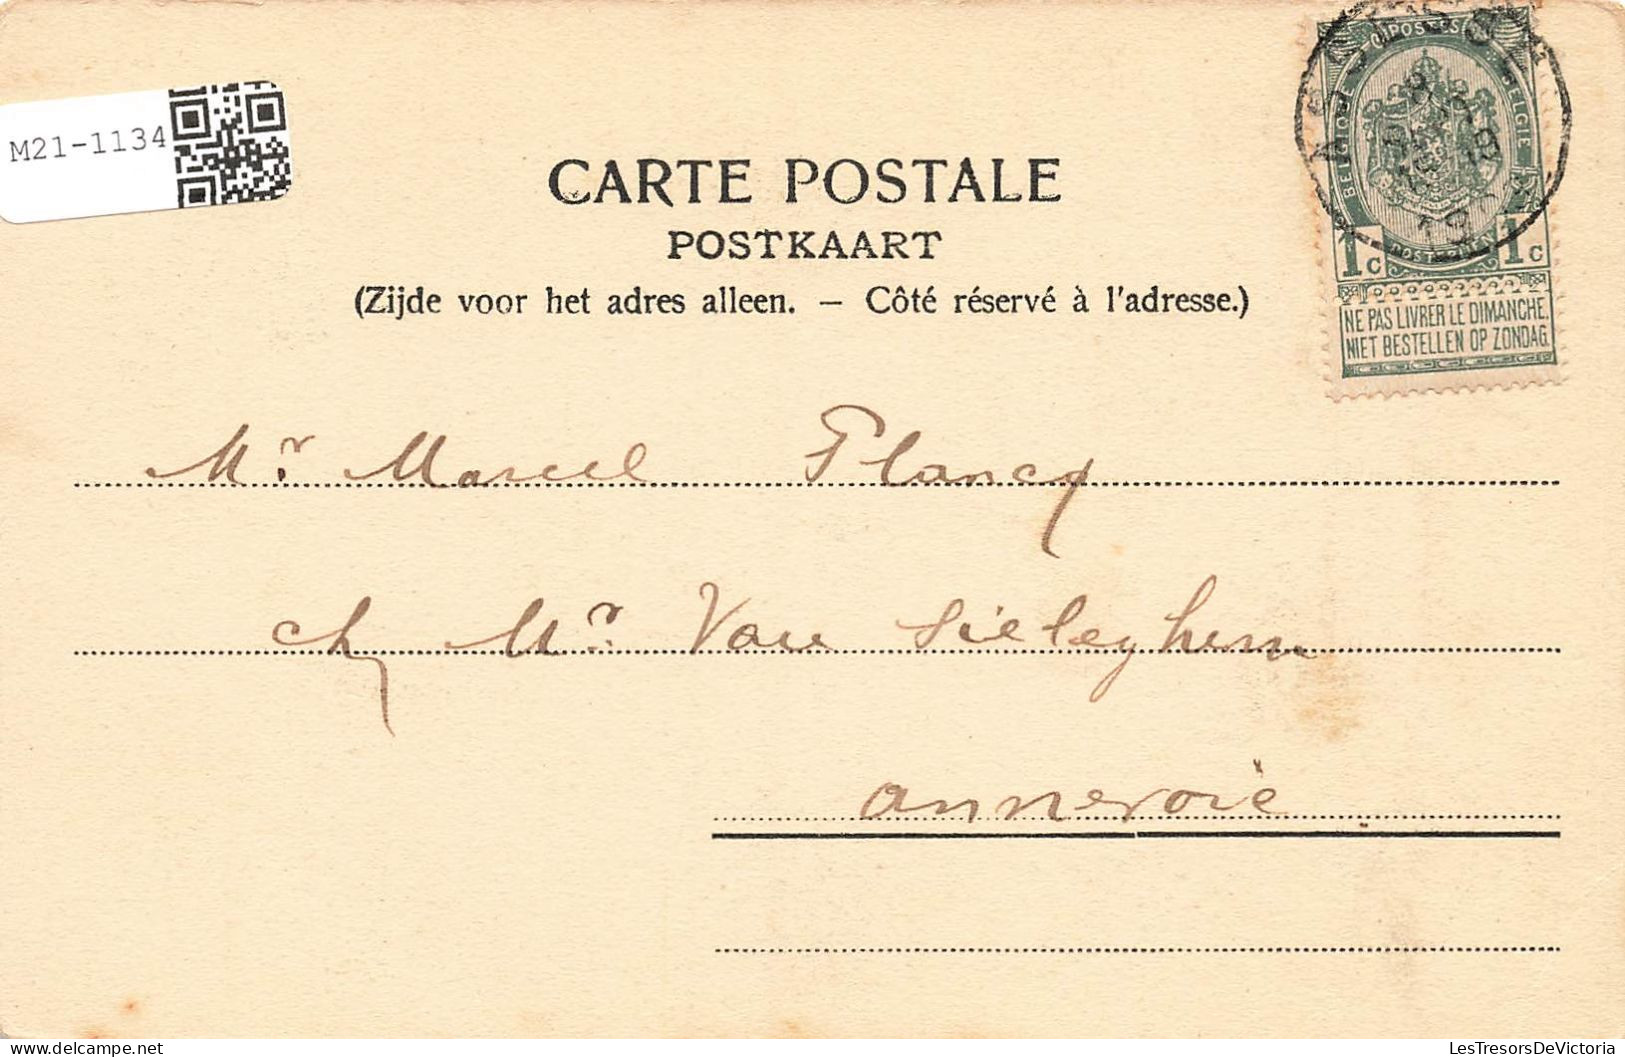 M21-1134
CARTE POSTALE
POSTKAART
(Zijde voor het adres alleen. – Côté réservé à l'adresse.)
POSTES
BELGIQUE BELGIE
POSTERIJEN
1c 1c
NE PAS LIVRER LE DIMANCHE.
NIET BESTELLEN OP ZONDAG.
Mr Marcel Plancq
ch Mr Van Sieleghem
annevoie
LesTresorsDeVictoria